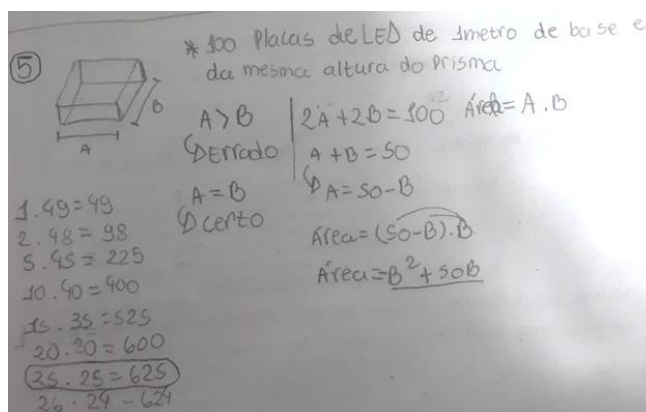 5
* 100 Placas de LED de 1metro de base e
da mesma altura do Prisma
A
B
A > B
Errado
A = B
certo
2A + 2B = 100 Área = A . B
A + B = 50
A = 50 - B
Área = (50-B).B
Área = B² + 50B
1 . 49 = 49
2 . 48 = 98
5 . 45 = 225
10 . 40 = 400
15 . 35 = 525
20 . 30 = 600
25 . 25 = 625
26 . 24 - 624